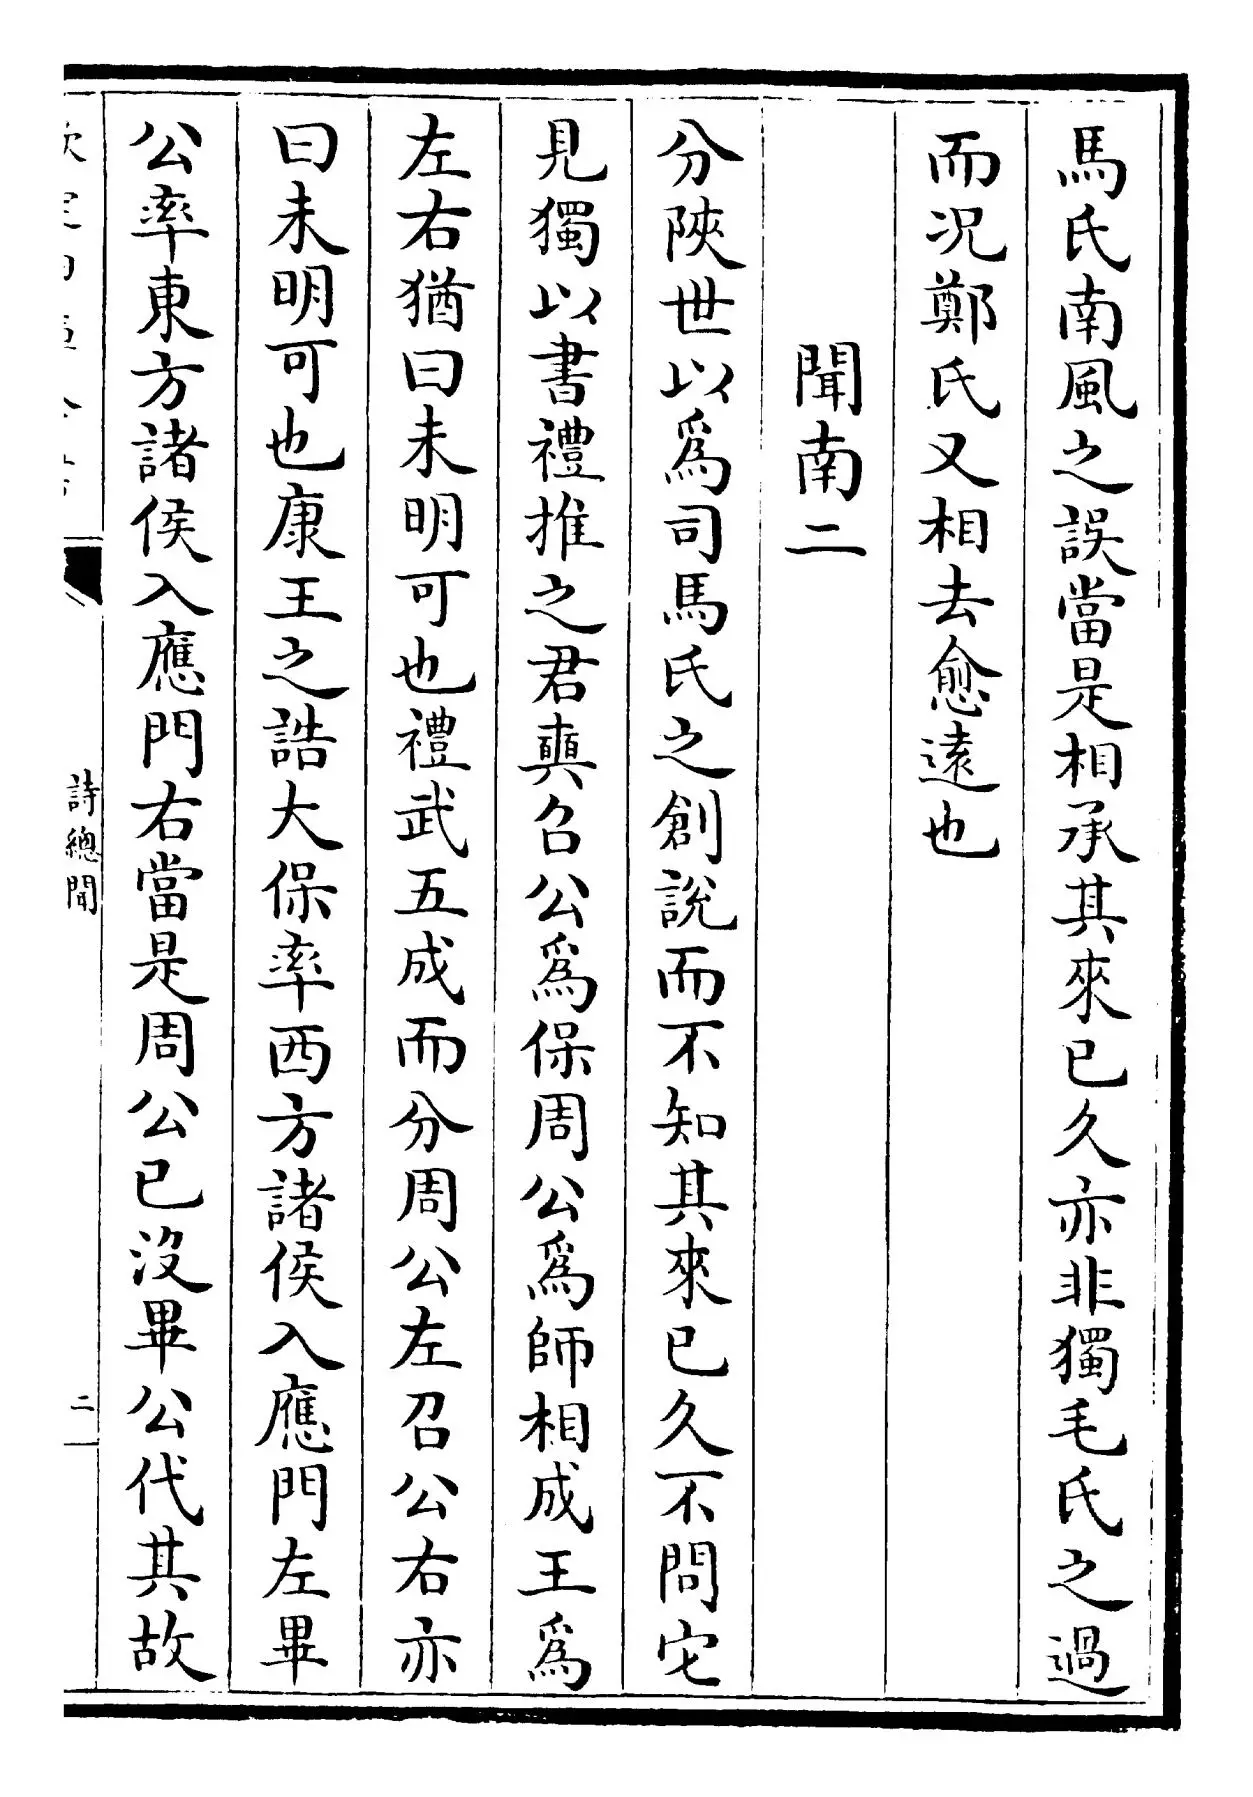 馬氏南風之誤當是相承其來已久亦非獨毛氏之過
而况鄭氏又相去愈遠也
聞南二
分陝世以為司馬氏之創說而不知其來已久不問它
見獨以書禮推之君奭召公為保周公為師相成王為
左右猶曰未明可也禮武五成而分周公左召公右亦
曰未明可也康王之誥大保率西方諸侯入應門左畢
公率東方諸侯入應門右當是周公已沒畢公代其故
欽定四庫全書
詩總聞
二